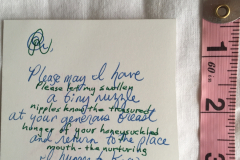 Please may I have
Please let my swollen
a tiny nuzzle
nipples know the treasured
at your generous breast
hunger of your honeysuckled
and return to the place
mouth - the nurturing
60